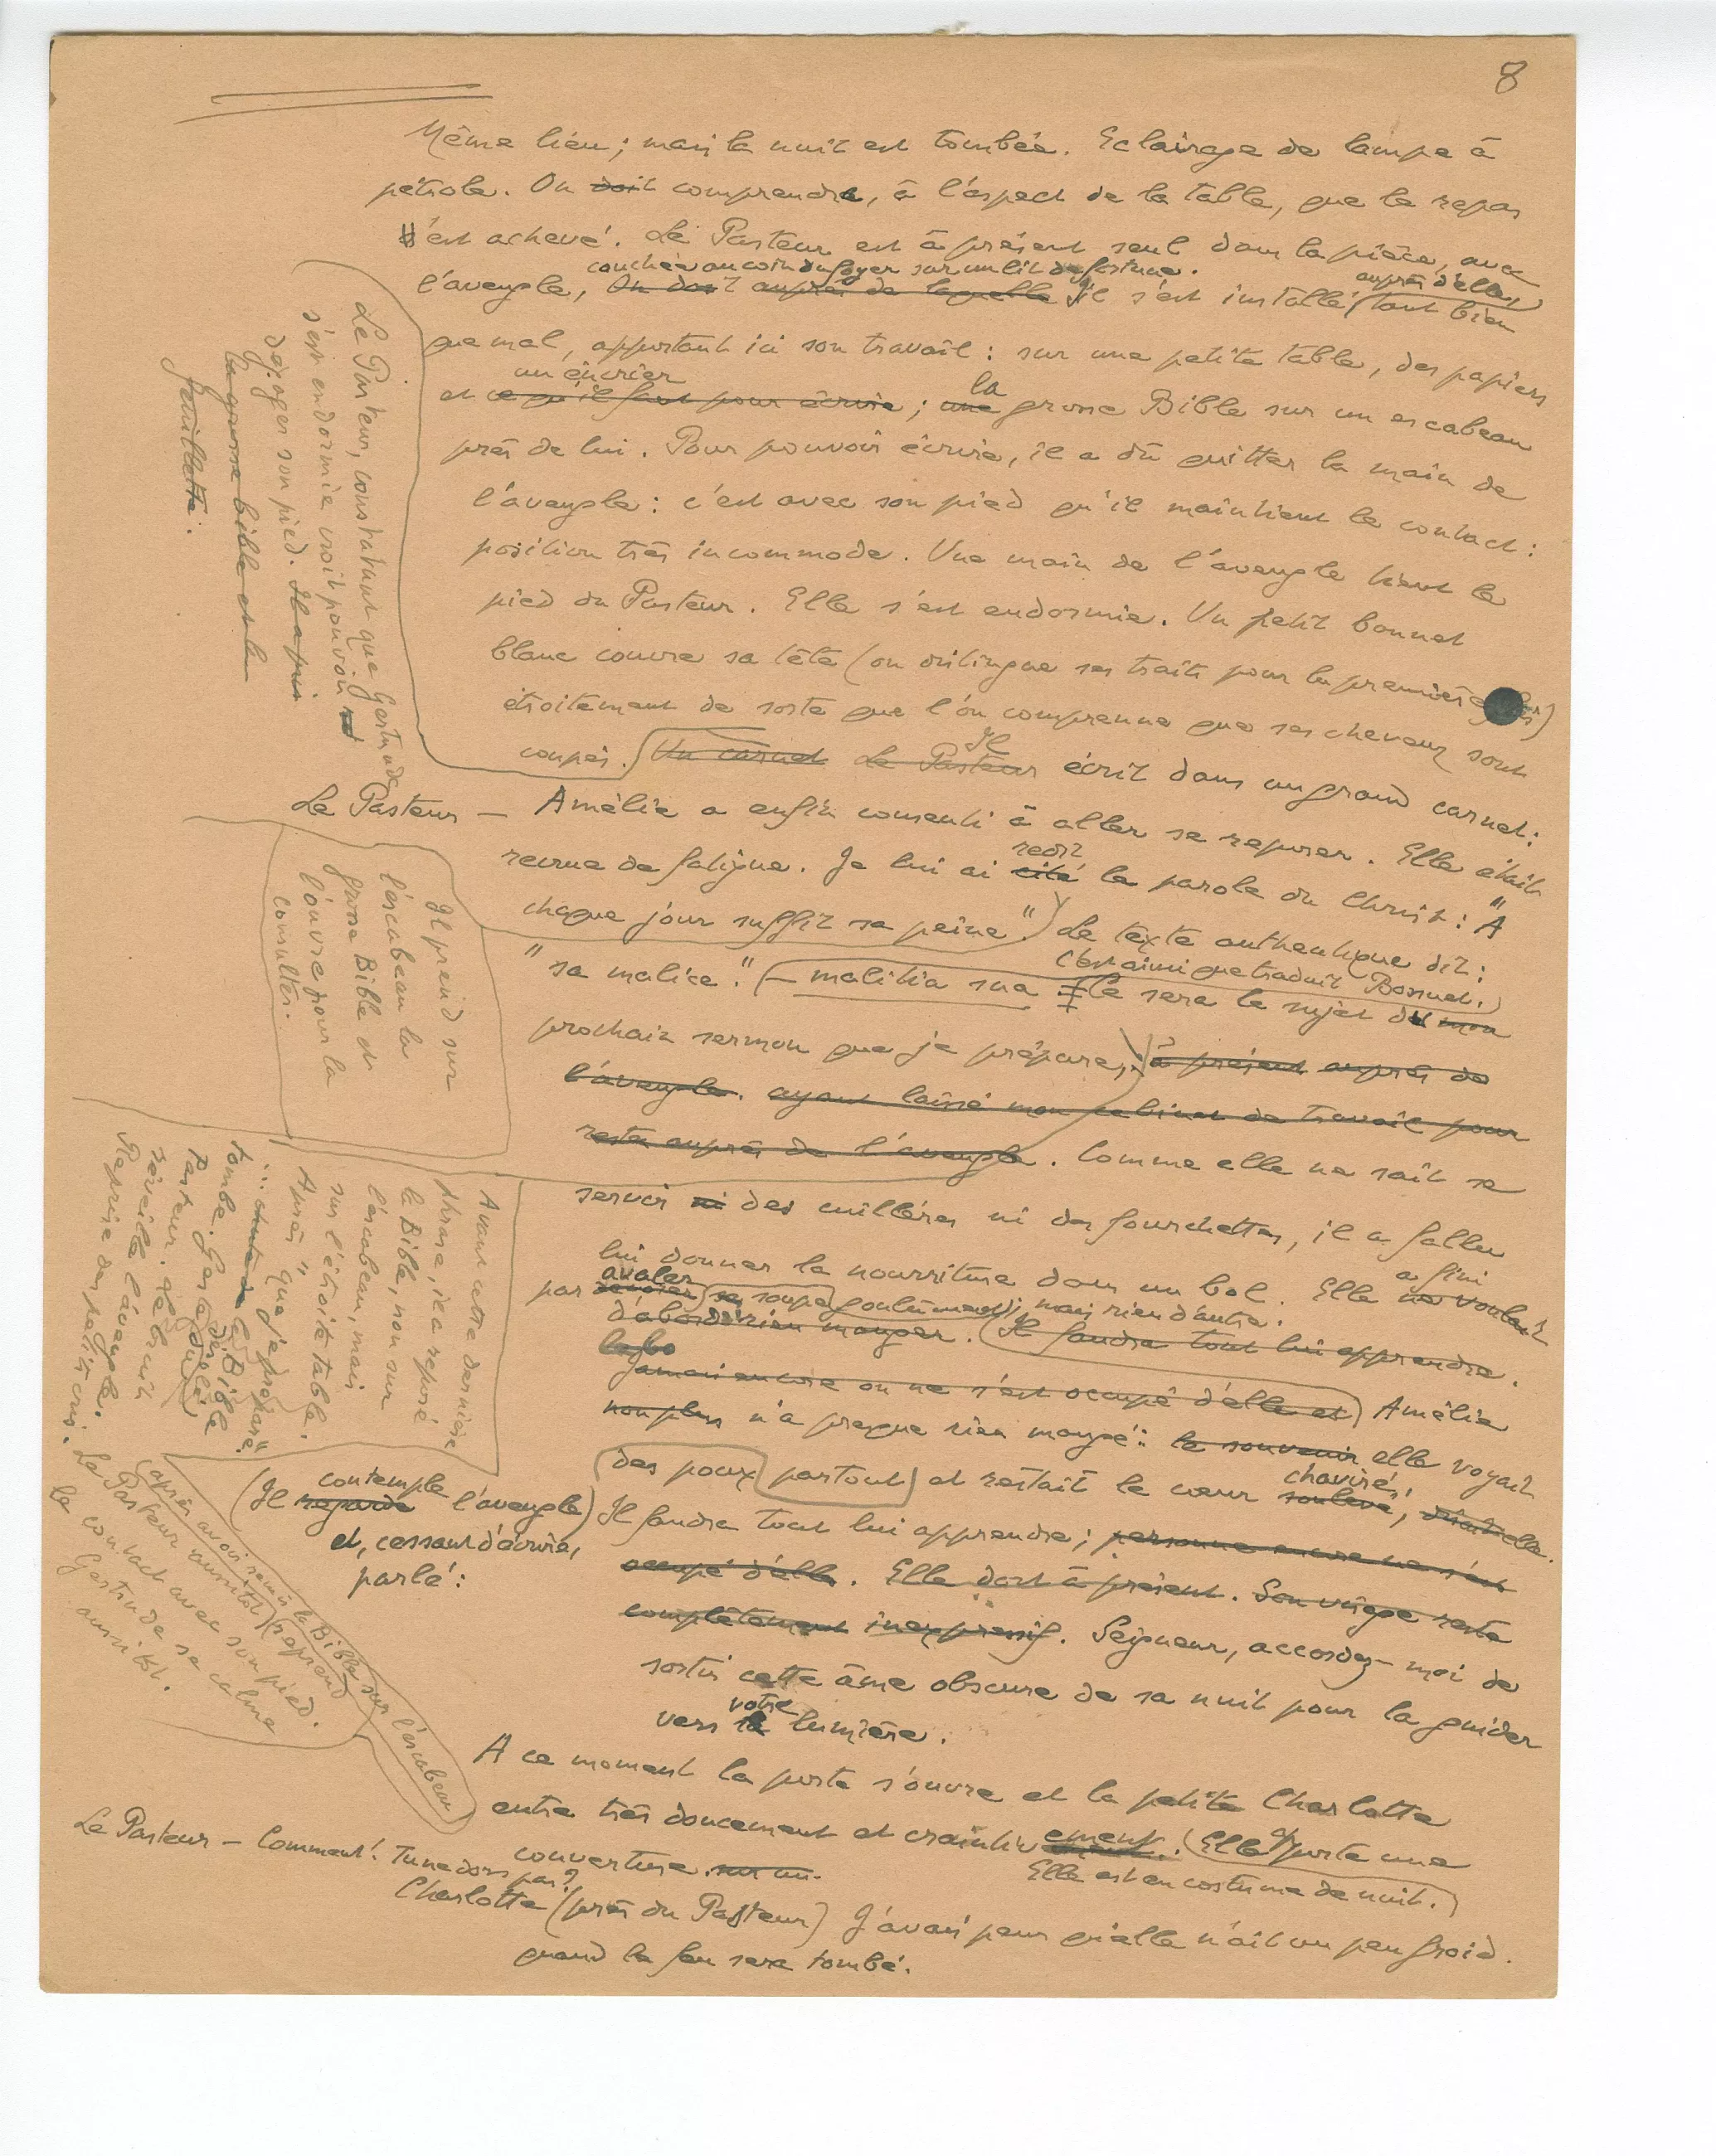 8
Même lieu ; mais la nuit est tombée. Eclairage de lampe à
pétrole. On doit comprendre, à l'aspect de la table, que le repas
s'est achevé. Le Pasteur est à présent seul dans la pièce, avec
couchée au coin du foyer sur un lit de fortune.
auprès d'elle,
l'aveugle, On doit auprès de laquelle Il s'est installé (tant bien
que mal, apportant ici son travail : sur une petite table, des papiers
un encrier
la
et ce qu'il faut pour écrire ; une grosse Bible sur un escabeau
près de lui. Pour pouvoir écrire, il a dû quitter la main de
l'aveugle : c'est avec son pied qu'il maintient le contact :
position très incommode. Une main de l'aveugle tient le
pied du Pasteur. Elle s'est endormie. Un petit bonnet
blanc couvre sa tête (on distingue ses traits pour la première fois)
étroitement de sorte que l'on comprenne que ses cheveux sont
Il
coupés. Un carnet Le Pasteur écrit dans un grand carnet :
Le Pasteur, constatant que Gertrude
s'est endormie croit pouvoir
dégager son pied. Il a pris
la grosse bible et la
feuillette.
Le Pasteur — Amélie a enfin consenti à aller se reposer. Elle était
redit
recrue de fatigue. Je lui ai cité la parole du Christ : "A
chaque jour suffit sa peine.") Le texte authentique dit :
c'est ainsi que traduit Bossuet.)
"sa malice." (— malitia sua Ce sera le sujet du mon
prochain sermon que je prépare, à présent auprès de
l'aveugle. ayant laissé mon cabinet de travail pour
rester auprès de l'aveugle. Comme elle ne sait se
Il prend sur
l'escabeau la
grosse Bible et
l'ouvre pour la
consulter.
servir ni des cuillères ni des fourchettes, il a fallu
lui donner la nourriture dans un bol. Elle ne voulait
a fini
avaler
par sa soupe goulûment ; mais rien d'autre.
d'abord rien manger. (Il faudra tout lui apprendre.
Jamais encore on ne s'est occupé d'elle et) Amélie
non plus n'a presque rien mangé : le souvenir elle voyait
chaviré,
des poux (partout) et restait le cœur soulevé,
Avant cette dernière
phrase, il a reposé
la Bible, non sur
l'escabeau, mais
sur l'étroite table.
Après "que je prépare"
: chute de la Bible
tombe. Geste du
Pasteur. Le bruit
réveille l'aveugle.
Reprise des petits cris. Le
(après avoir remis la Bible sur l'escabeau)
Pasteur aussitôt reprend
le contact avec son pied.
Gertrude se calme
aussitôt.
contemple
(Il regarde l'aveugle)
et, cessant d'écrire,
parlé :
Il faudra tout lui apprendre ; personne encore ne s'est
occupé d'elle. Elle dort à présent. Son visage reste
complètement inexpressif. Seigneur, accordez-moi de
sortir cette âme obscure de sa nuit pour la guider
votre
vers la lumière.
A ce moment la porte s'ouvre et la petite Charlotte
entre très doucement et craintivement. (Elle apporte une
couverture. sur un.
Elle est en costume de nuit.)
Le Pasteur — Comment ! Tu ne dors pas ?
Charlotte (près du Pasteur) J'avais peur qu'elle n'ait un peu froid.
quand le feu sera tombé.